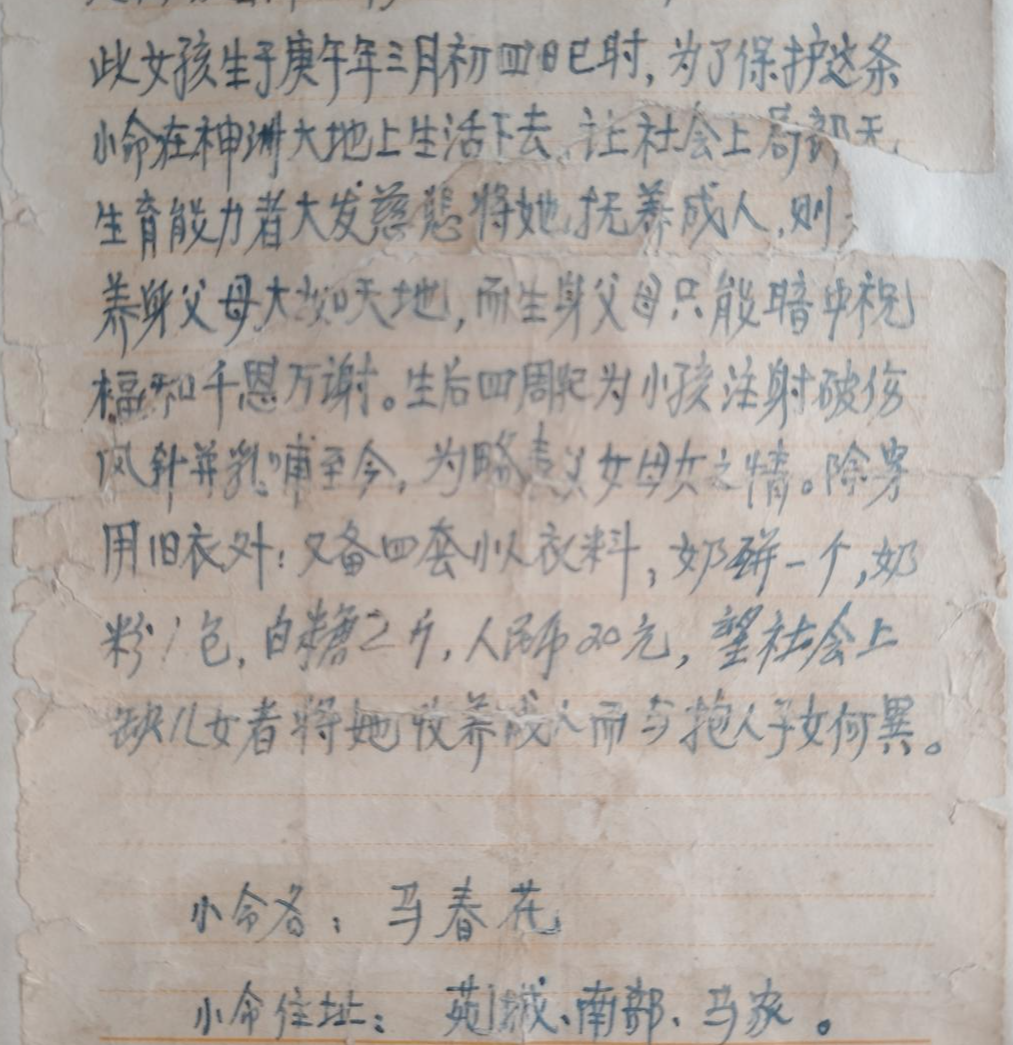 此女孩生于庚午年三月初四日巳时，为了保护这条
小命在神洲大地上生活下去，让社会上局部无
生育能力者大发慈悲将她抚养成人，则
养身父母大如天地，而生身父母只能暗中祝
福和千恩万谢。生后四周记为小孩注射破伤
风针并乳哺至今，为略表父女母女之情。除穿
用旧衣外：又备四套小人衣料，奶瓶一个，奶
粉1包，白糖2斤，人民币20元，望社会上
缺儿女者将她收养成人而与抱人子女何異。
小命名：马春花
小命住址：苑城、南部、马家。